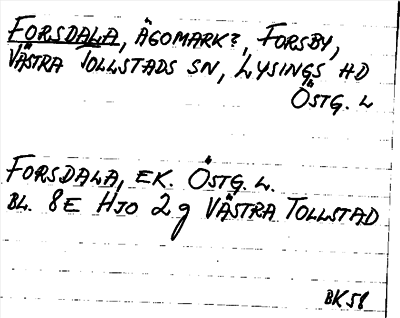 FORSDALA, ÄGOMARK?, FORSBY,
VÄSTRA TOLLSTADS SN, LYSINGS HD
ÖSTG. L
FORSDALA, EK. ÖSTG. L.
BL. 8E HJO 2g VÄSTRA TOLLSTAD
BK58